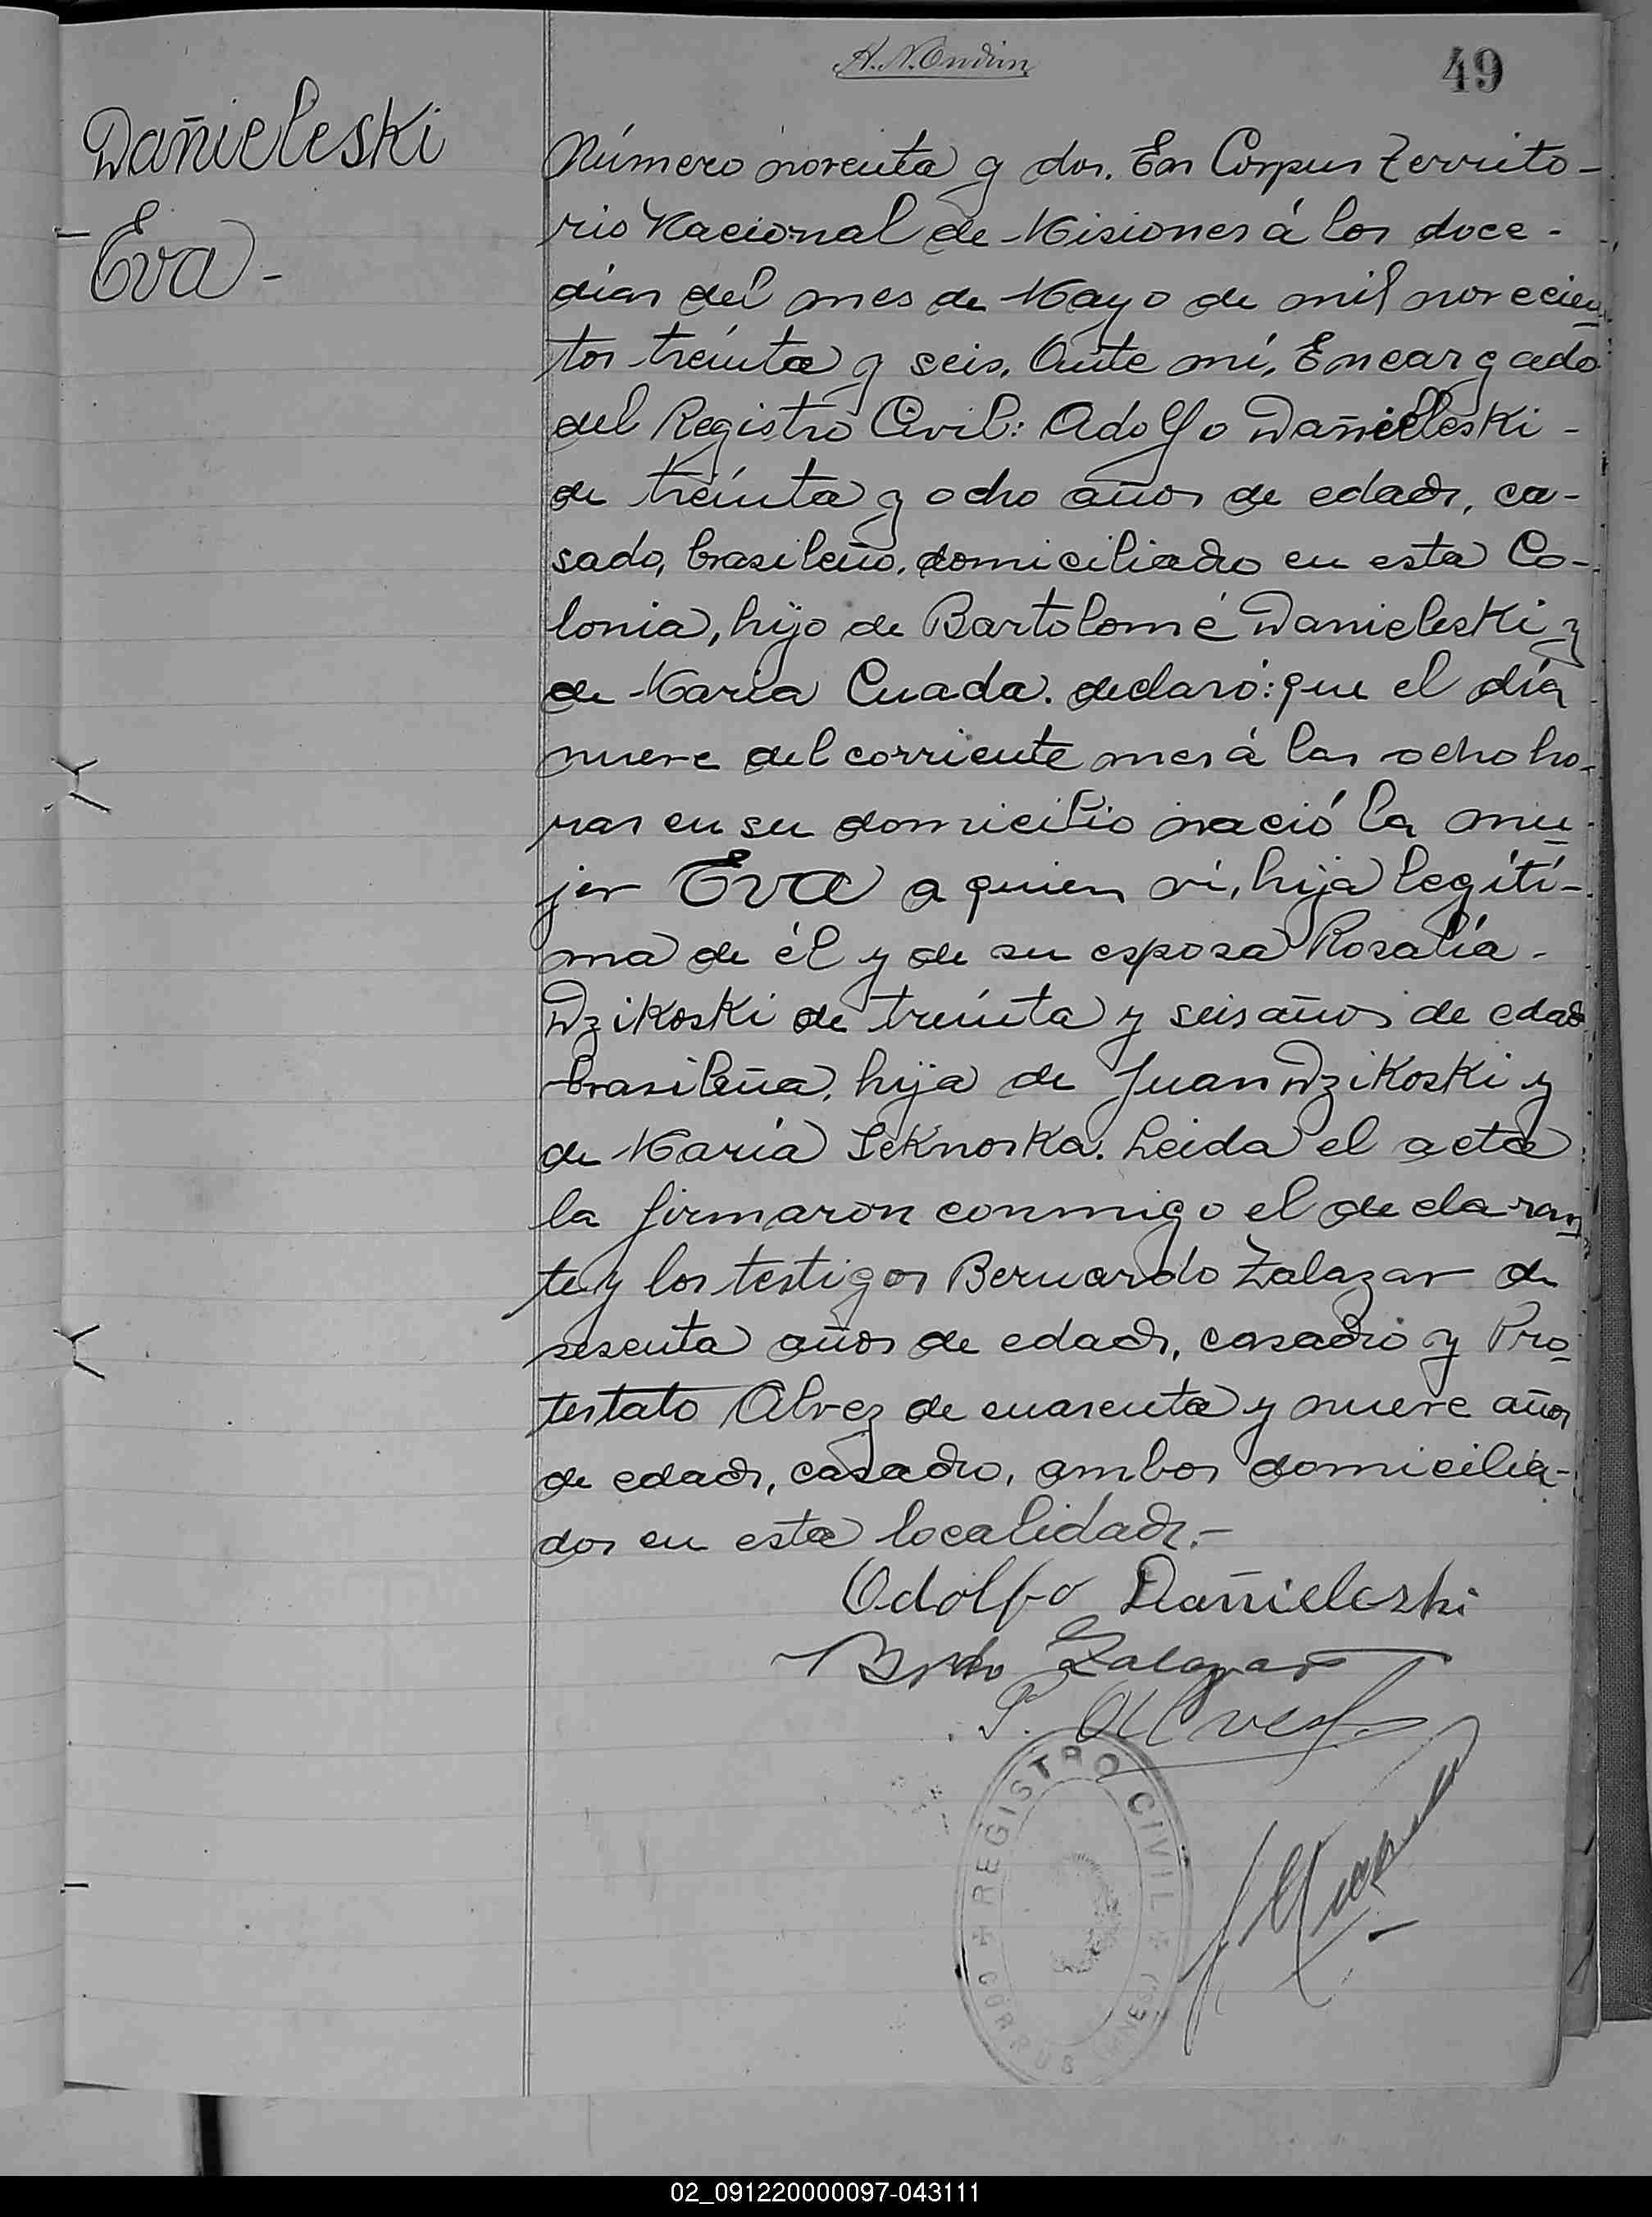 49
Dañieleski
Eva -
Número noventa y dos. En Corpus Territo-
rio Nacional de Misiones á los doce -
días del mes de Mayo de mil novecien
tos treinta y seis, Ante mí, Encargado
del Registro Civil: Adolfo Dañieleski -
de treinta y ocho años de edad, ca-
sado, brasileño, domiciliado en esta Co-
lonia, hijo de Bartolomé Danieleski y
de Maria Cuada. declaró: que el día
nueve del corriente mes á las ocho ho-
ras en su domicilio nació la mu-
jer Eva a quien ví, hija legíti-
ma de él y de su esposa Rosalía -
Dzikoski de treinta y seis años de edad
brasileña, hija de Juan Dzikoski y
de María Seknoska. Leida el acta
la firmaron conmigo el declaran
te y los testigos Bernardo Zalazar de
sesenta años de edad, casado y Pro-
testato Alvez de cuarenta y nueve años
de edad, casado, ambos domicilia-
dos en esta localidad. -
Adolfo Dañieleski
Brdo Zalazar
P. Alvez
REGISTRO CIVIL
CORPUS
02_091220000097-043111